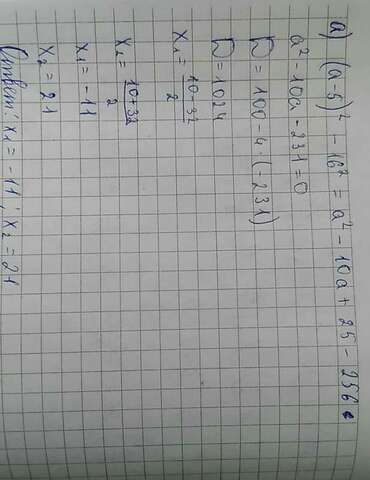 а) (a-5)² - 16² = a² - 10a + 25 - 256
a² - 10a - 231 = 0
D = 100 - 4·(-231)
D = 1024
x₁ = 10-32/2
x₂ = 10+32/2
x₁ = -11
x₂ = 21
Ответ: x₁ = -11; x₂ = 21